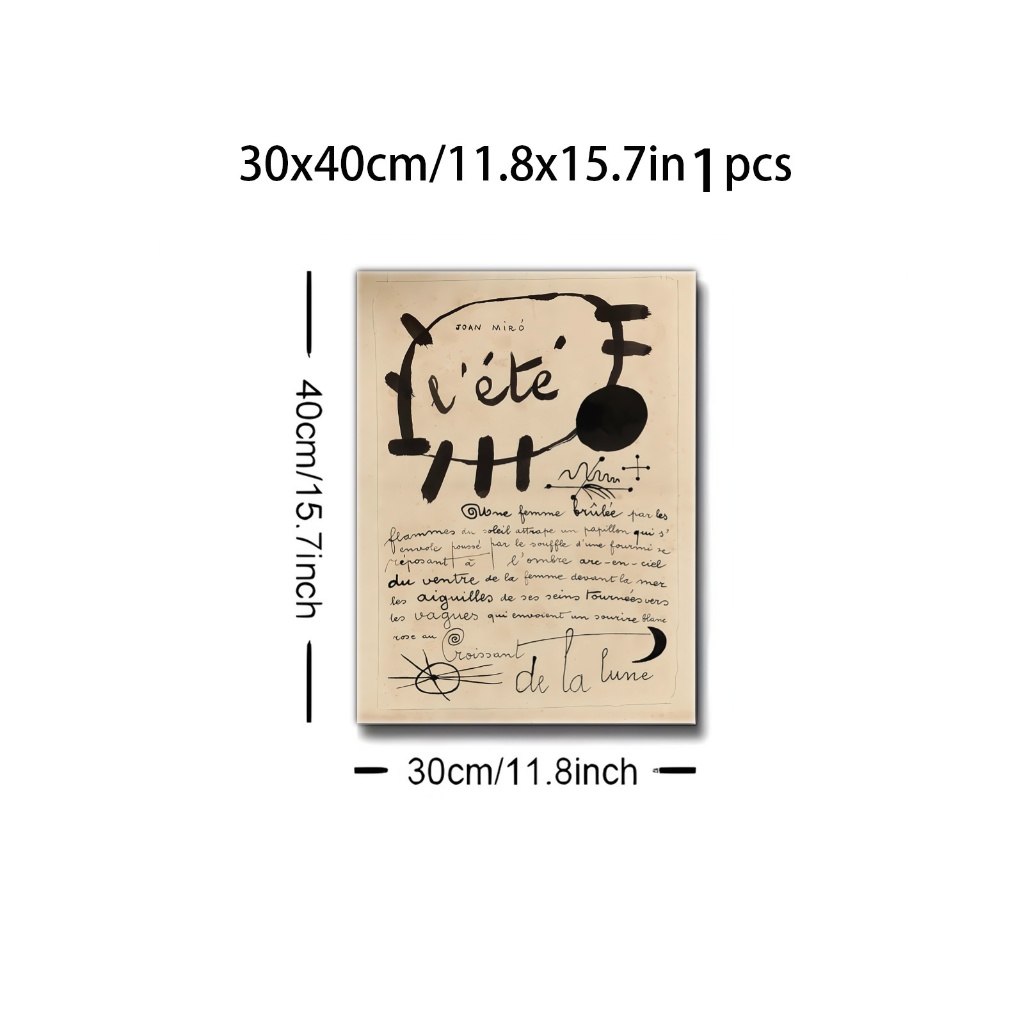 30x40cm/11.8x15.7in 1 pcs
JOAN MIRÓ
l'été
Une femme brûlée par les
flammes du soleil attrape un papillon qui s'
envole poussé par le souffle d'une fourmi se
réposant à l'ombre arc-en-ciel
du ventre de la femme devant la mer
les aiguilles de ses seins tournées vers
les vagues qui envoient un sourire blanc
rose au
Croissant
de la lune
40cm/15.7inch
30cm/11.8inch